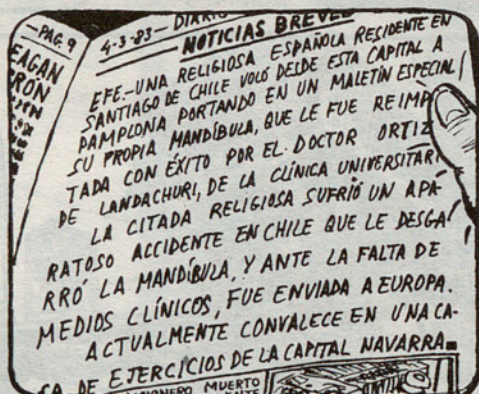 —PAG. 9
EAGAN
4-3-83— DIARIO
NOTICIAS BREVES
EFE.-UNA RELIGIOSA ESPAÑOLA RESIDENTE EN
SANTIAGO DE CHILE VOLÓ DESDE ESTA CAPITAL A
PAMPLONA PORTANDO EN UN MALETÍN ESPECIAL
SU PROPIA MANDÍBULA, QUE LE FUE REIMP
TADA CON ÉXITO POR EL DOCTOR ORTIZ
DE LANDACHURI, DE LA CLÍNICA UNIVERSITARI
LA CITADA RELIGIOSA SUFRIÓ UN APA-
RATOSO ACCIDENTE EN CHILE QUE LE DESGA-
RRÓ LA MANDÍBULA, Y ANTE LA FALTA DE
MEDIOS CLÍNICOS, FUE ENVIADA A EUROPA.
ACTUALMENTE CONVALECE EN UNA CA-
SA DE EJERCICIOS DE LA CAPITAL NAVARRA
MUERTO